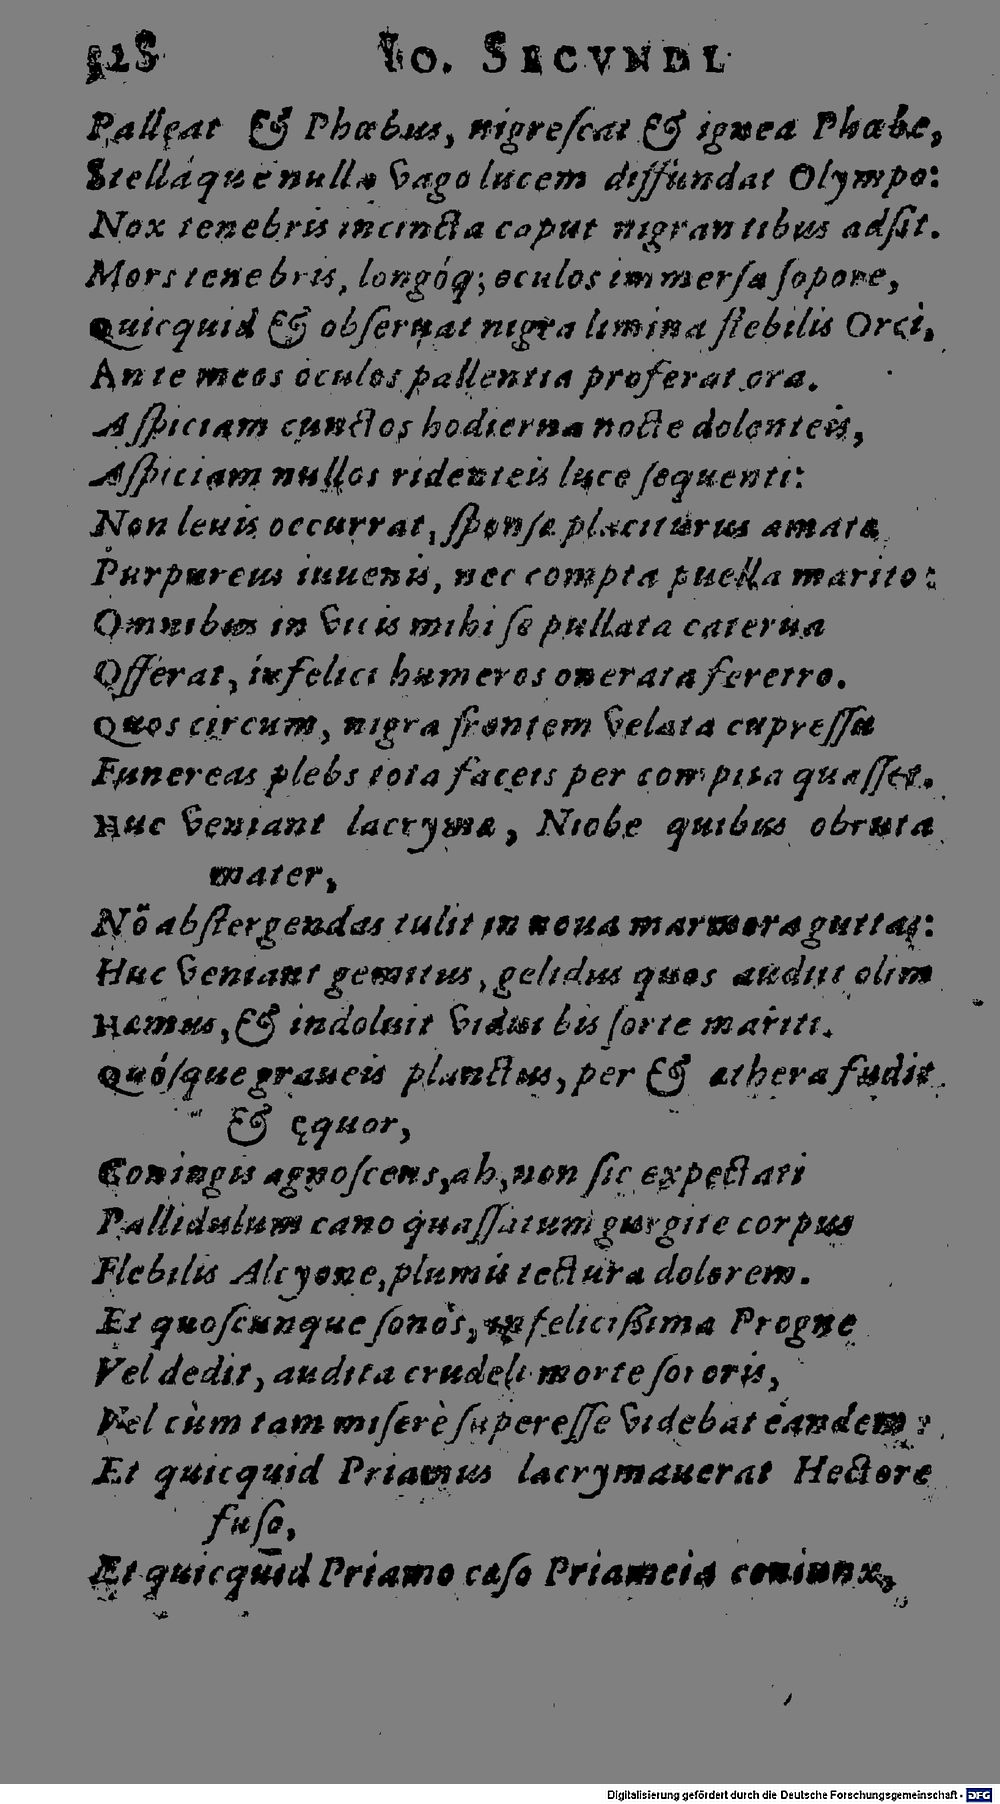 128 IO. SECVNDI.
Palleat & Phœbus, nigreſcat & ignea Phœbe,
Stelláque nullo vago lucem diffundat Olympo:
Nox tenebris incincta caput nigrantibus adſit.
Mors tenebris, longóq; oculos immerſa ſopore,
Quicquid & obſeruat nigra limina flebilis Orci,
Ante meos oculos pallentia proferat ora.
Aſpiciam cunctos hodierna nocte dolenteis,
Aſpiciam nullos ridenteis luce ſequenti:
Non leuis occurrat, ſponſæ placiturus amatæ
Purpureus iuuenis, nec compta puella marito:
Omnibus in vicis mihi ſe pullata caterua
Offerat, infelici humeros onerata feretro.
Quos circum, nigra frontem velata cupreſſu
Funereas plebs tota faceis per compita quaſſet.
Huc veniant lacrymæ, Niobe quibus obruta
mater,
Nõ abſtergendas tulit in noua marmora guttas:
Huc veniant gemitus, gelidus quos audiit olim
Hæmus, & indoluit vidui bis ſorte mariti.
Quóſque graueis planctus, per & æthera fudit
& ęquor,
Coniugis agnoſcens, ah, non ſic expectati
Pallidulum cano quaſſatum gurgite corpus
Flebilis Alcyone, plumis tectura dolorem.
Et quoſcunque ſonos, infeliciſsima Progne
Vel dedit, audita crudeli morte ſororis,
Vel cùm tam miſerè ſupereſſe videbat eandem:
Et quicquid Priamus lacrymauerat Hectore
fuſo,
Et quicquid Priamo cæſo Priameia coniunx,
Digitalisierung gefördert durch die Deutsche Forschungsgemeinschaft - DFG